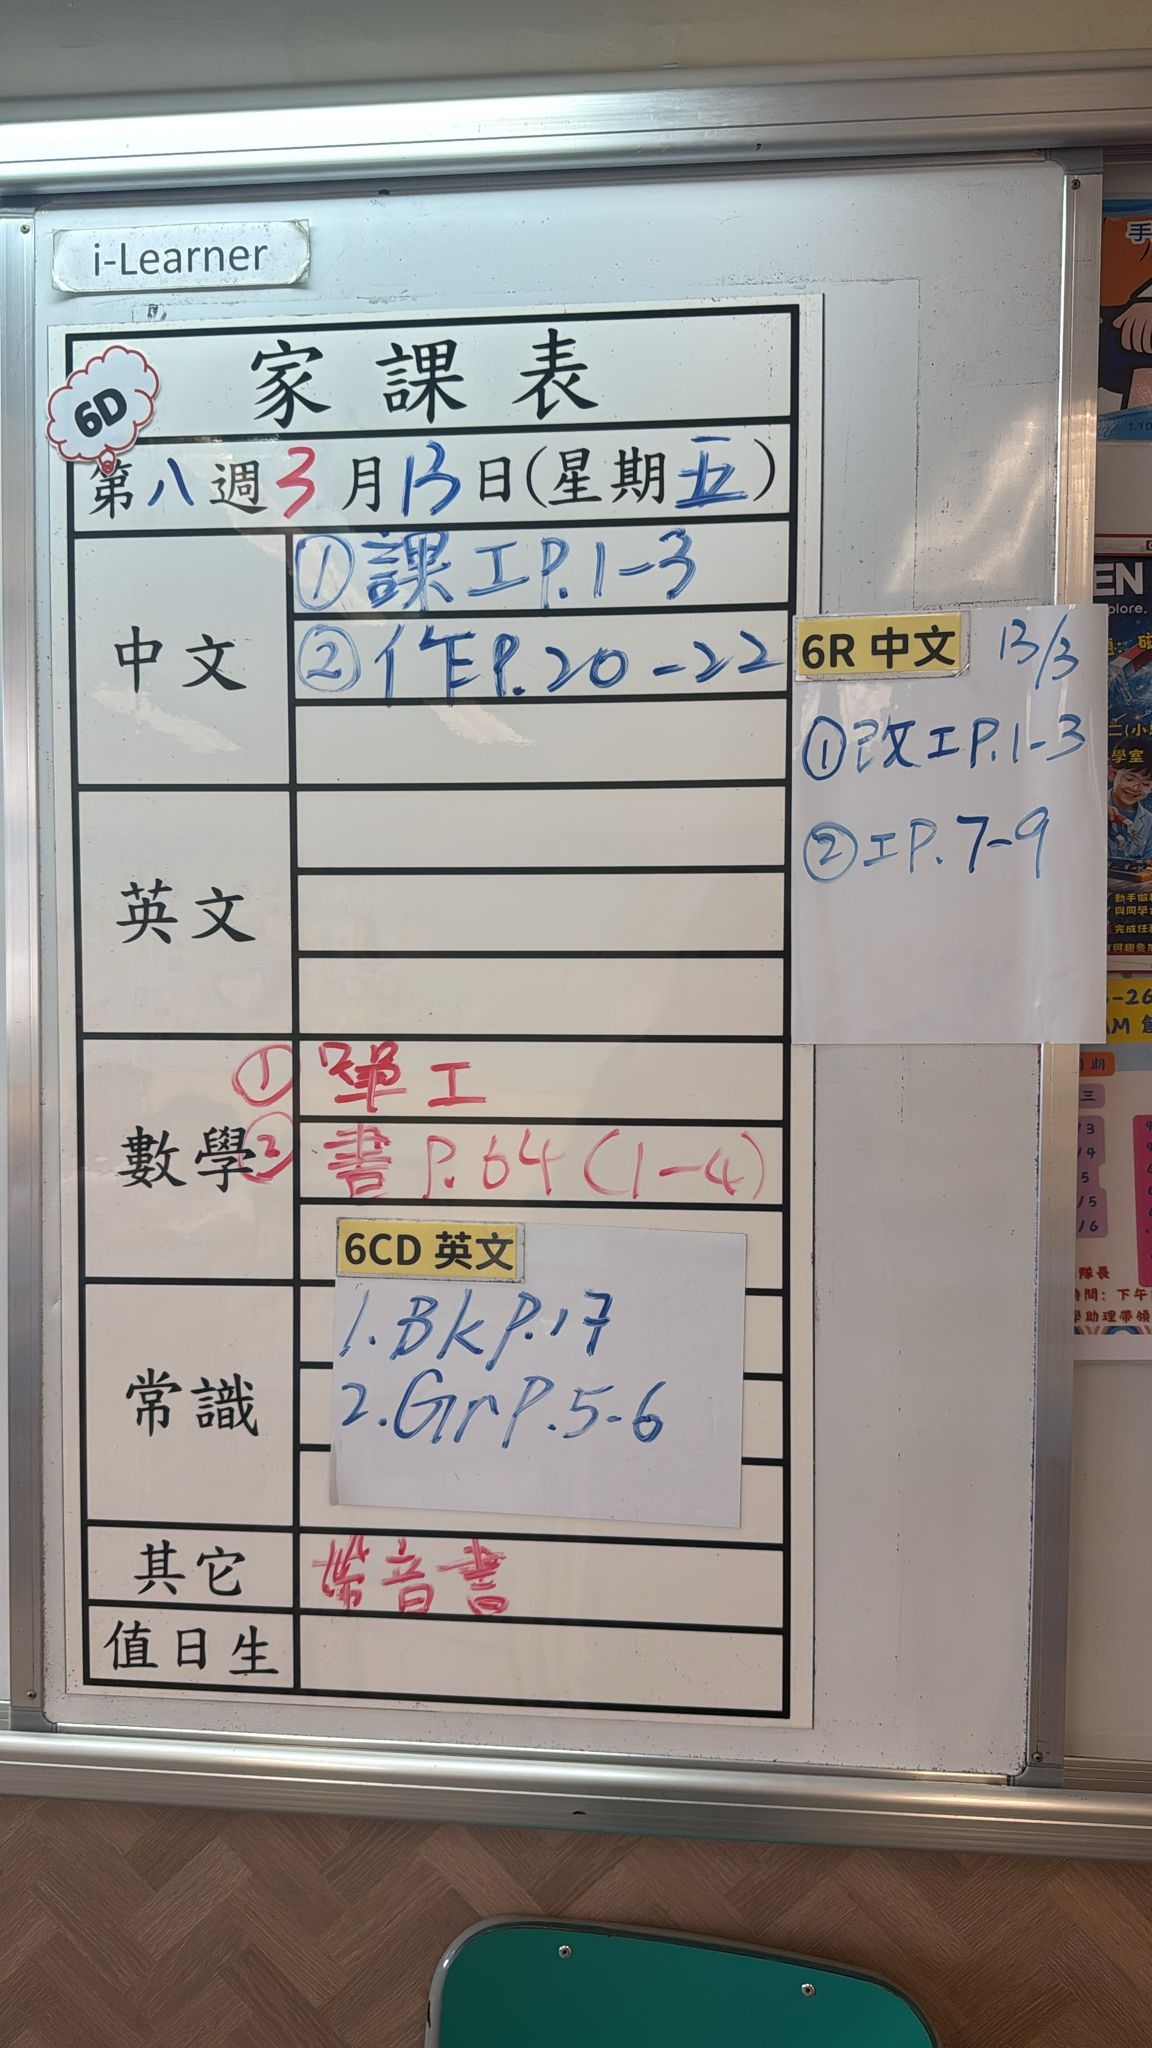 i-Learner
6D
家課表
第八週3月13日(星期五)
中文
①課工P.1-3
②作P.20-22
英文
數學
①單工
②書P.64(1-4)
常識
其它
帶音書
值日生
6R 中文 13/3
①改工P.1-3
②工P.7-9
6CD 英文
1.BkP.17
2.GrP.5-6
手
EN
plore.
學室
動手做
與同學
完成任
-26
AM 創
期
三
隊長
時間：下午
學助理帶領